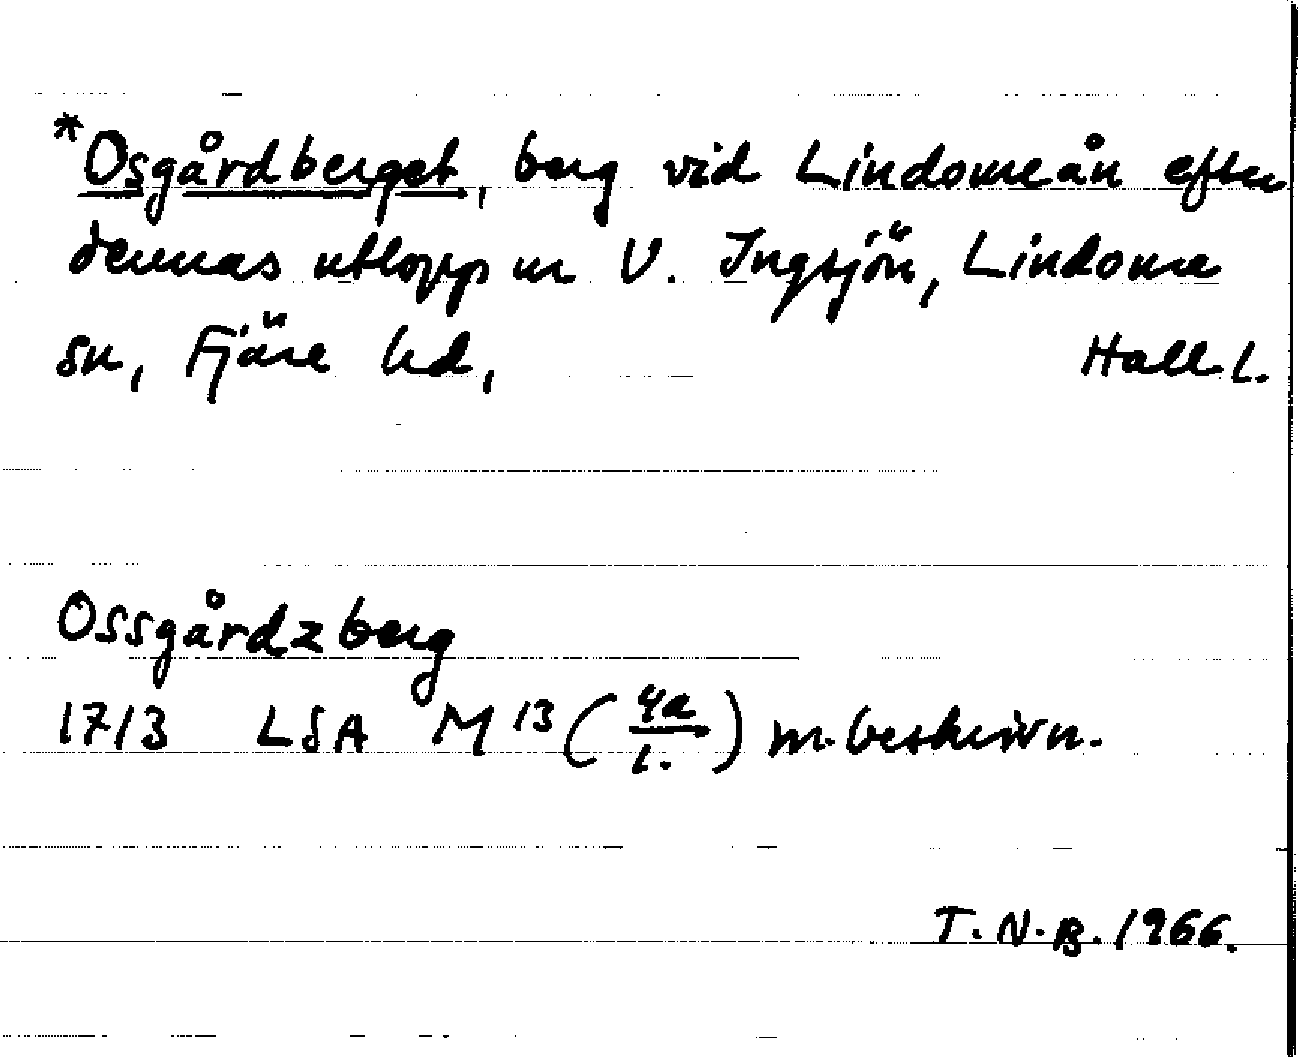 *Osgårdberget, berg vid Lindomeån efter
dennas utlopp ur V. Ingsjön, Lindome
sn, Fjäre hd, Hall. l.
Ossgårdzberg
1713 LSA M 13 (4a/1.) m. beskrivn.
T. N. B. 1966.